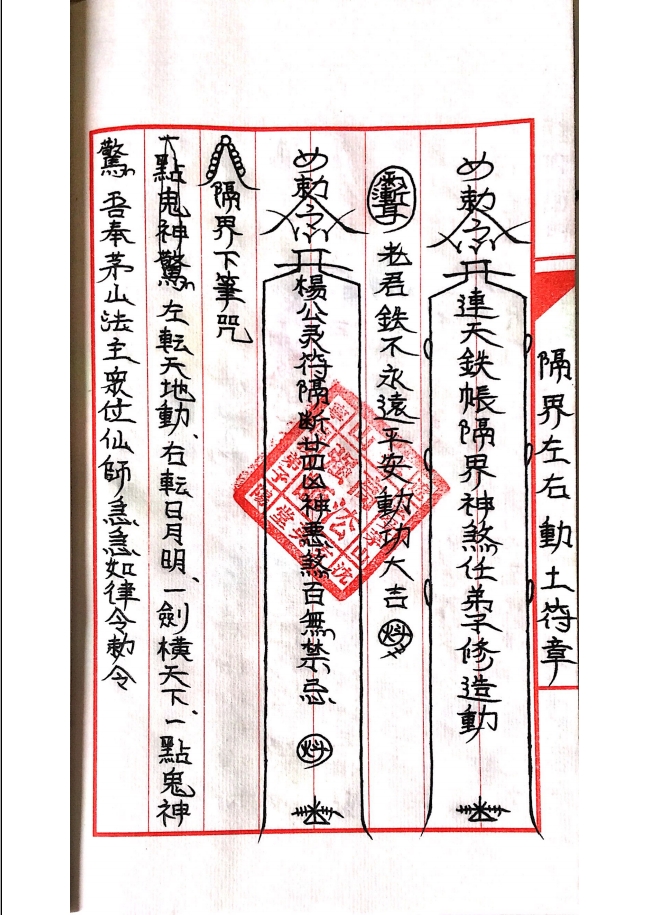 隔界左右動土符章
敕令 連天鉄帳隔界神煞任弟子修造動
老君鉄不永遠平安動功大吉
敕令 楊公灵符隔断廿四凶神悪煞百無禁忌
隔界下筆咒
一點鬼神驚 左転天地動、右転日月明、一劍橫天下、一點鬼神
驚 吾奉茅山法主衆位仙師急急如律令勅令